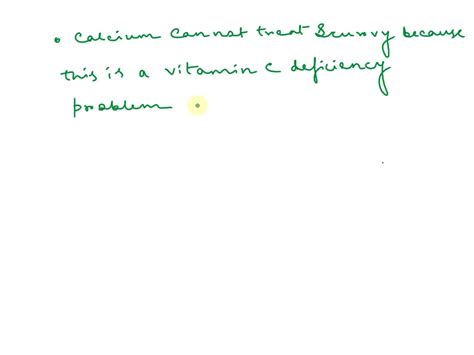 • Calcium cannot treat Scurvy because
this is a vitamin C deficiency
problem